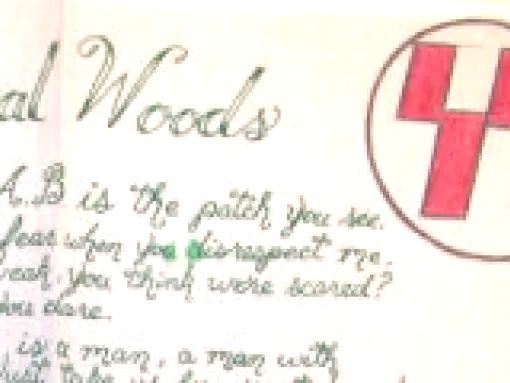 al Woods
A.B is the patch you see.
fear when you disrespect me.
yeah, you think were scared?
you dare.
is a man, a man with
just take